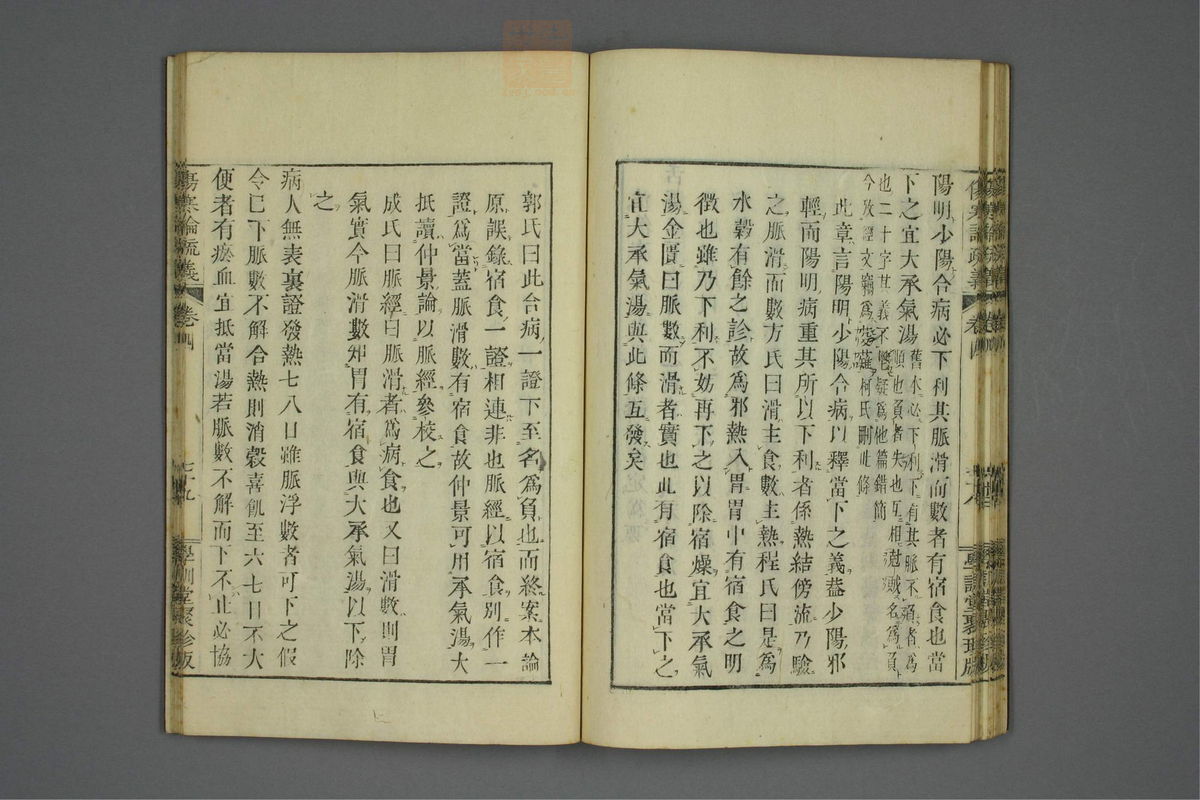 陽明少陽合病必下利其脈滑而數者有宿食也當
下之宜大承氣湯舊本必下利下有其脈不負者爲
順也負者失也互相尅賊名爲負
也二十字其義不 疑爲他篇錯簡
今攷經文 爲 柯氏刪此條
此章言陽明少陽合病以釋當下之義葢少陽邪
輕而陽明病重其所以下利者係熱結傍流乃驗
之脈滑而數方氏曰滑主食數主熱程氏曰是爲
水穀有餘之診故爲邪熱入胃胃中有宿食之明
徴也雖乃下利不妨再下之以除宿燥宜大承氣
湯金匱曰脈數而滑者實也此有宿食也當下之
宜大承氣湯與此條互發矣
傷寒論疏義 卷四 七十八 學訓堂聚珍版
郭氏曰此合病一證下至名爲負也而終案本論
原誤錄宿食一證相連非也脈經以宿食別作一
證爲當蓋脈滑數有宿食故仲景可用承氣湯大
抵讀仲景論以脈經參校之
成氏曰脈經曰脈滑者爲病食也又曰滑數則胃
氣實今脈滑數知胃有宿食與大承氣湯以下除
之
病人無表裏證發熱七八日雖脈浮數者可下之假
令已下脈數不解合熱則消穀喜飢至六七日不大
便者有瘀血宜抵當湯若脈數不解而下不止必協
傷寒論疏義 卷四 七十九 學訓堂聚珍版